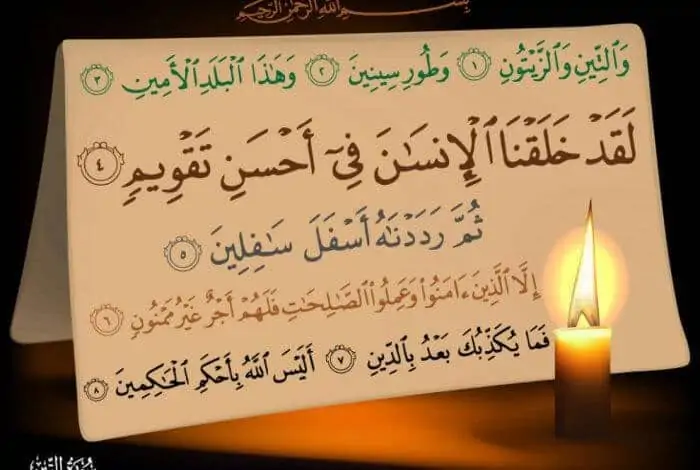 بِسْمِ اللَّهِ الرَّحْمَٰنِ الرَّحِيمِ
وَٱلتِّينِ وَٱلزَّيْتُونِ ١ وَطُورِ سِينِينَ ٢ وَهَٰذَا ٱلْبَلَدِ ٱلْأَمِينِ ٣
لَقَدْ خَلَقْنَا ٱلْإِنسَٰنَ فِىٓ أَحْسَنِ تَقْوِيمٍ ٤
ثُمَّ رَدَدْنَٰهُ أَسْفَلَ سَٰفِلِينَ ٥
إِلَّا ٱلَّذِينَ ءَامَنُوا۟ وَعَمِلُوا۟ ٱلصَّٰلِحَٰتِ فَلَهُمْ أَجْرٌ غَيْرُ مَمْنُونٍ ٦
فَمَا يُكَذِّبُكَ بَعْدُ بِٱلدِّينِ ٧ أَلَيْسَ ٱللَّهُ بِأَحْكَمِ ٱلْحَٰكِمِينَ ٨
سُورَةُ التِّينِ